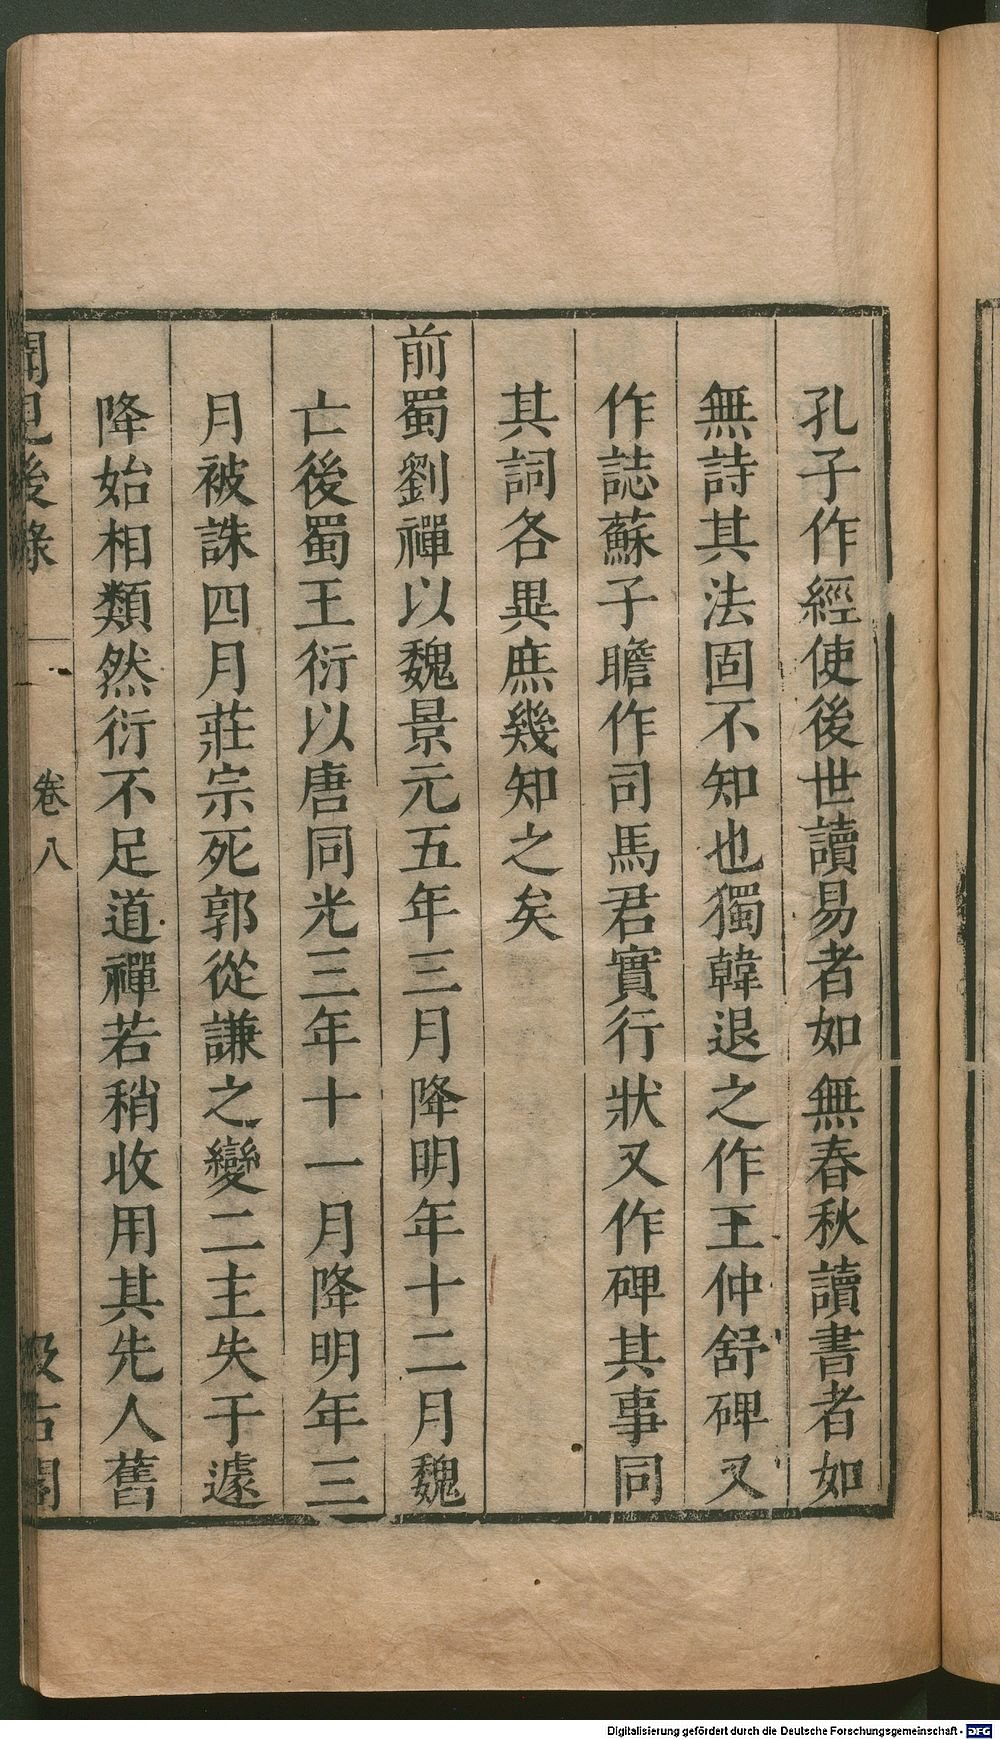 孔子作經使後世讀易者如無春秋讀書者如
無詩其法固不知也獨韓退之作王仲舒碑又
作誌蘇子瞻作司馬君實行狀又作碑其事同
其詞各異庶幾知之矣
前蜀劉禪以魏景元五年三月降明年十二月魏
亡後蜀王衍以唐同光三年十一月降明年三
月被誅四月莊宗死郭從謙之變二主失于遽
降始相類然衍不足道禪若稍收用其先人舊
聞見後錄 卷八 汲古閣
Digitalisierung gefördert durch die Deutsche Forschungsgemeinschaft - DFG